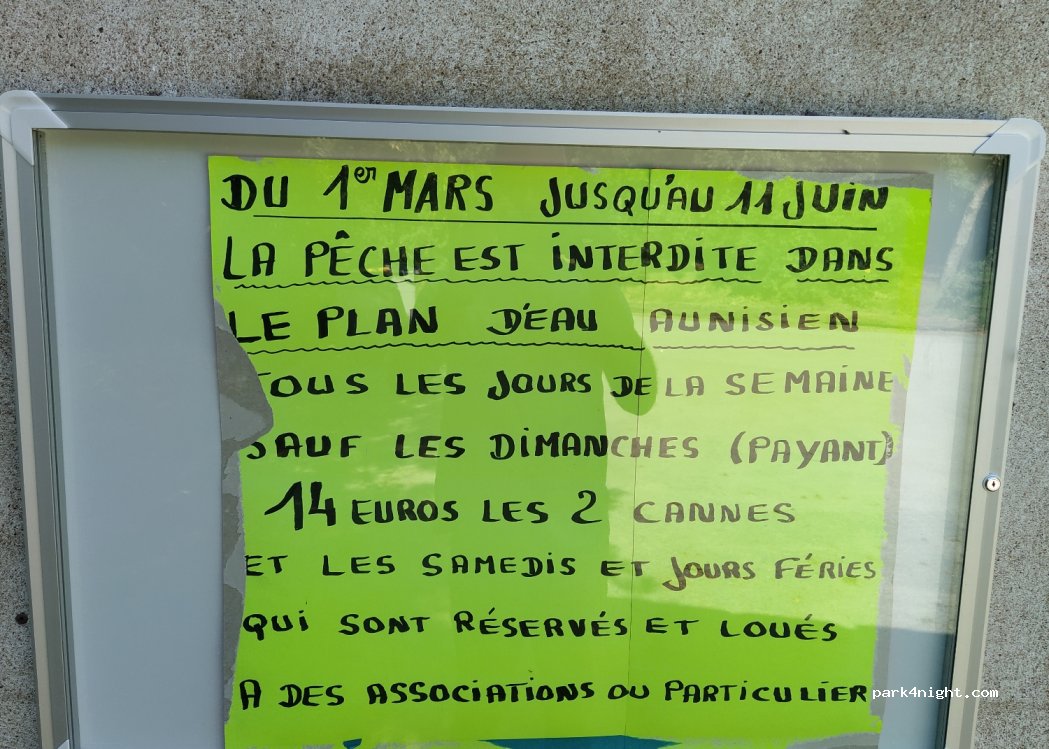 DU 1er MARS JUSQU'AU 11 JUIN
LA PÊCHE EST INTERDITE DANS
LE PLAN D'EAU AUNISIEN
TOUS LES JOURS DE LA SEMAINE
SAUF LES DIMANCHES (PAYANT)
14 EUROS LES 2 CANNES
ET LES SAMEDIS ET JOURS FÉRIES
QUI SONT RÉSERVÉS ET LOUÉS
A DES ASSOCIATIONS OU PARTICULIER
park4night.com